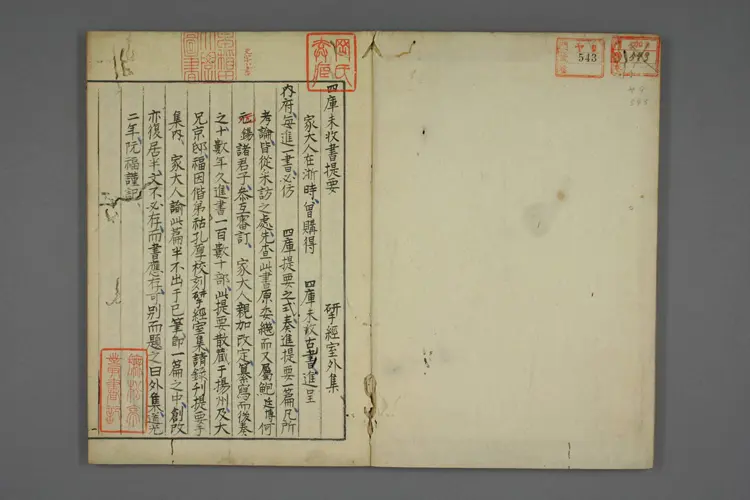 543
四庫未收書提要　　　　揅經室外集
家大人在浙時曾購得　四庫未收古書進呈
内府每進一書必仿　四庫提要之式奏進提要一篇凡所
考論皆從采訪之處先查此書原委繼而又屬鮑廷博何
元錫諸君子參互審訂　家大人親加改定纂寫而後奏
之十數年久進書一百數十部此提要散藏于揚州及大
兄京邸福因偕弟祜孔厚校刻揅經室集請錄刊提要于
集内　家大人諭此篇半不出于己筆即一篇之中創改
亦復居半文不必存而書應存可別而題之曰外集道光
二年阮福謹記